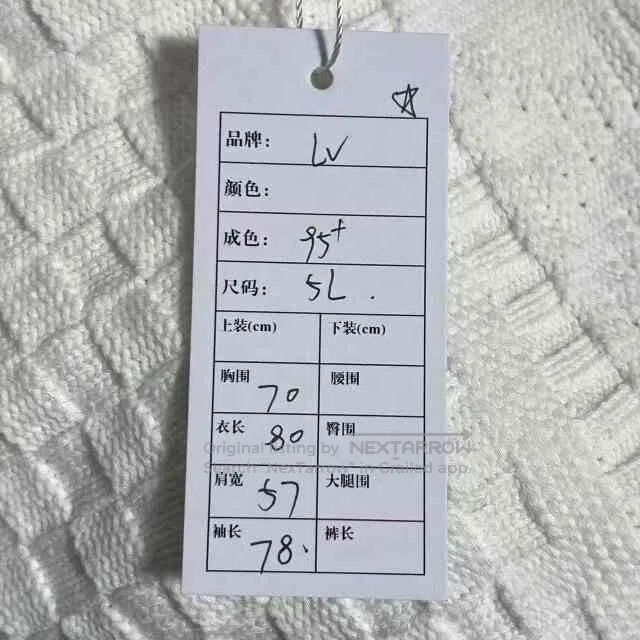 品牌: LV
颜色:
成色: 95+
尺码: 5L.
上装(cm) 下装(cm)
胸围 70 腰围
衣长 80 臀围
Original listing by NEXTARROW
Search "NexTarrow" in Grailed app.
肩宽 57 大腿围
袖长 78. 裤长